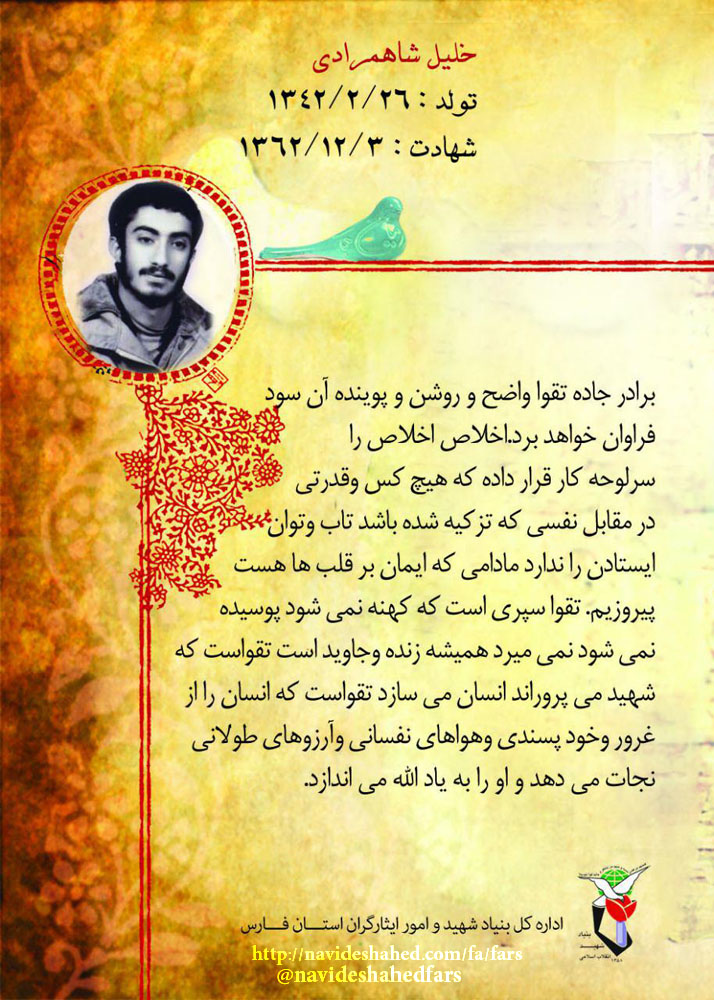 خلیل شاهمرادی
تولد : ۱۳۴۲/۲/۲۶
شهادت : ۱۳۶۲/۱۲/۳
برادر جاده تقوا واضح و روشن و پوینده آن سود
فراوان خواهد برد.اخلاص اخلاص را
سرلوحه کار قرار داده که هیچ کس وقدرتی
در مقابل نفسی که تزکیه شده باشد تاب وتوان
ایستادن را ندارد مادامی که ایمان بر قلب ها هست
پیروزیم. تقوا سپری است که کهنه نمی شود پوسیده
نمی شود نمی میرد همیشه زنده وجاوید است تقواست که
شهید می پروراند انسان می سازد تقواست که انسان را از
غرور وخود پسندی وهواهای نفسانی وآرزوهای طولانی
نجات می دهد و او را به یاد الله می اندازد.
بنیاد
شهید
انقلاب اسلامی
اداره کل بنیاد شهید و امور ایثارگران استان فارس
http://navideshahed.com/fa/fars
@navideshahedfars